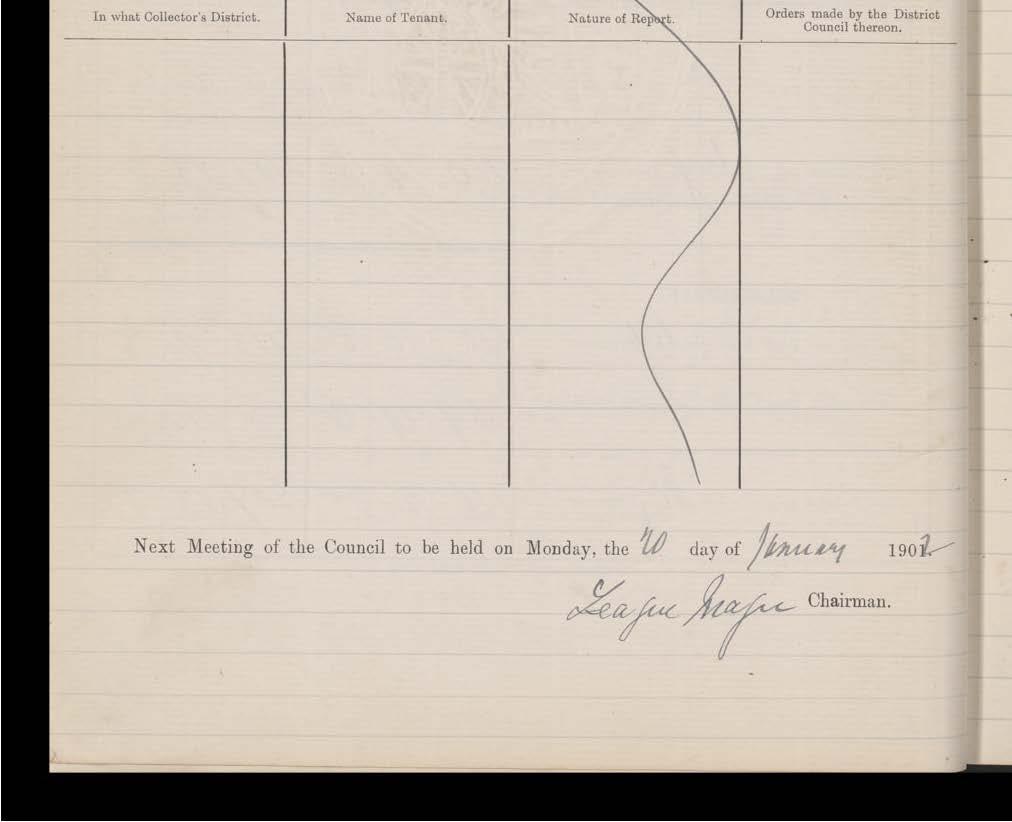 In what Collector's District.
Name of Tenant.
Nature of Report.
Orders made by the District
Council thereon.
Next Meeting of the Council to be held on Monday, the 20 day of January 1902
Chairman.